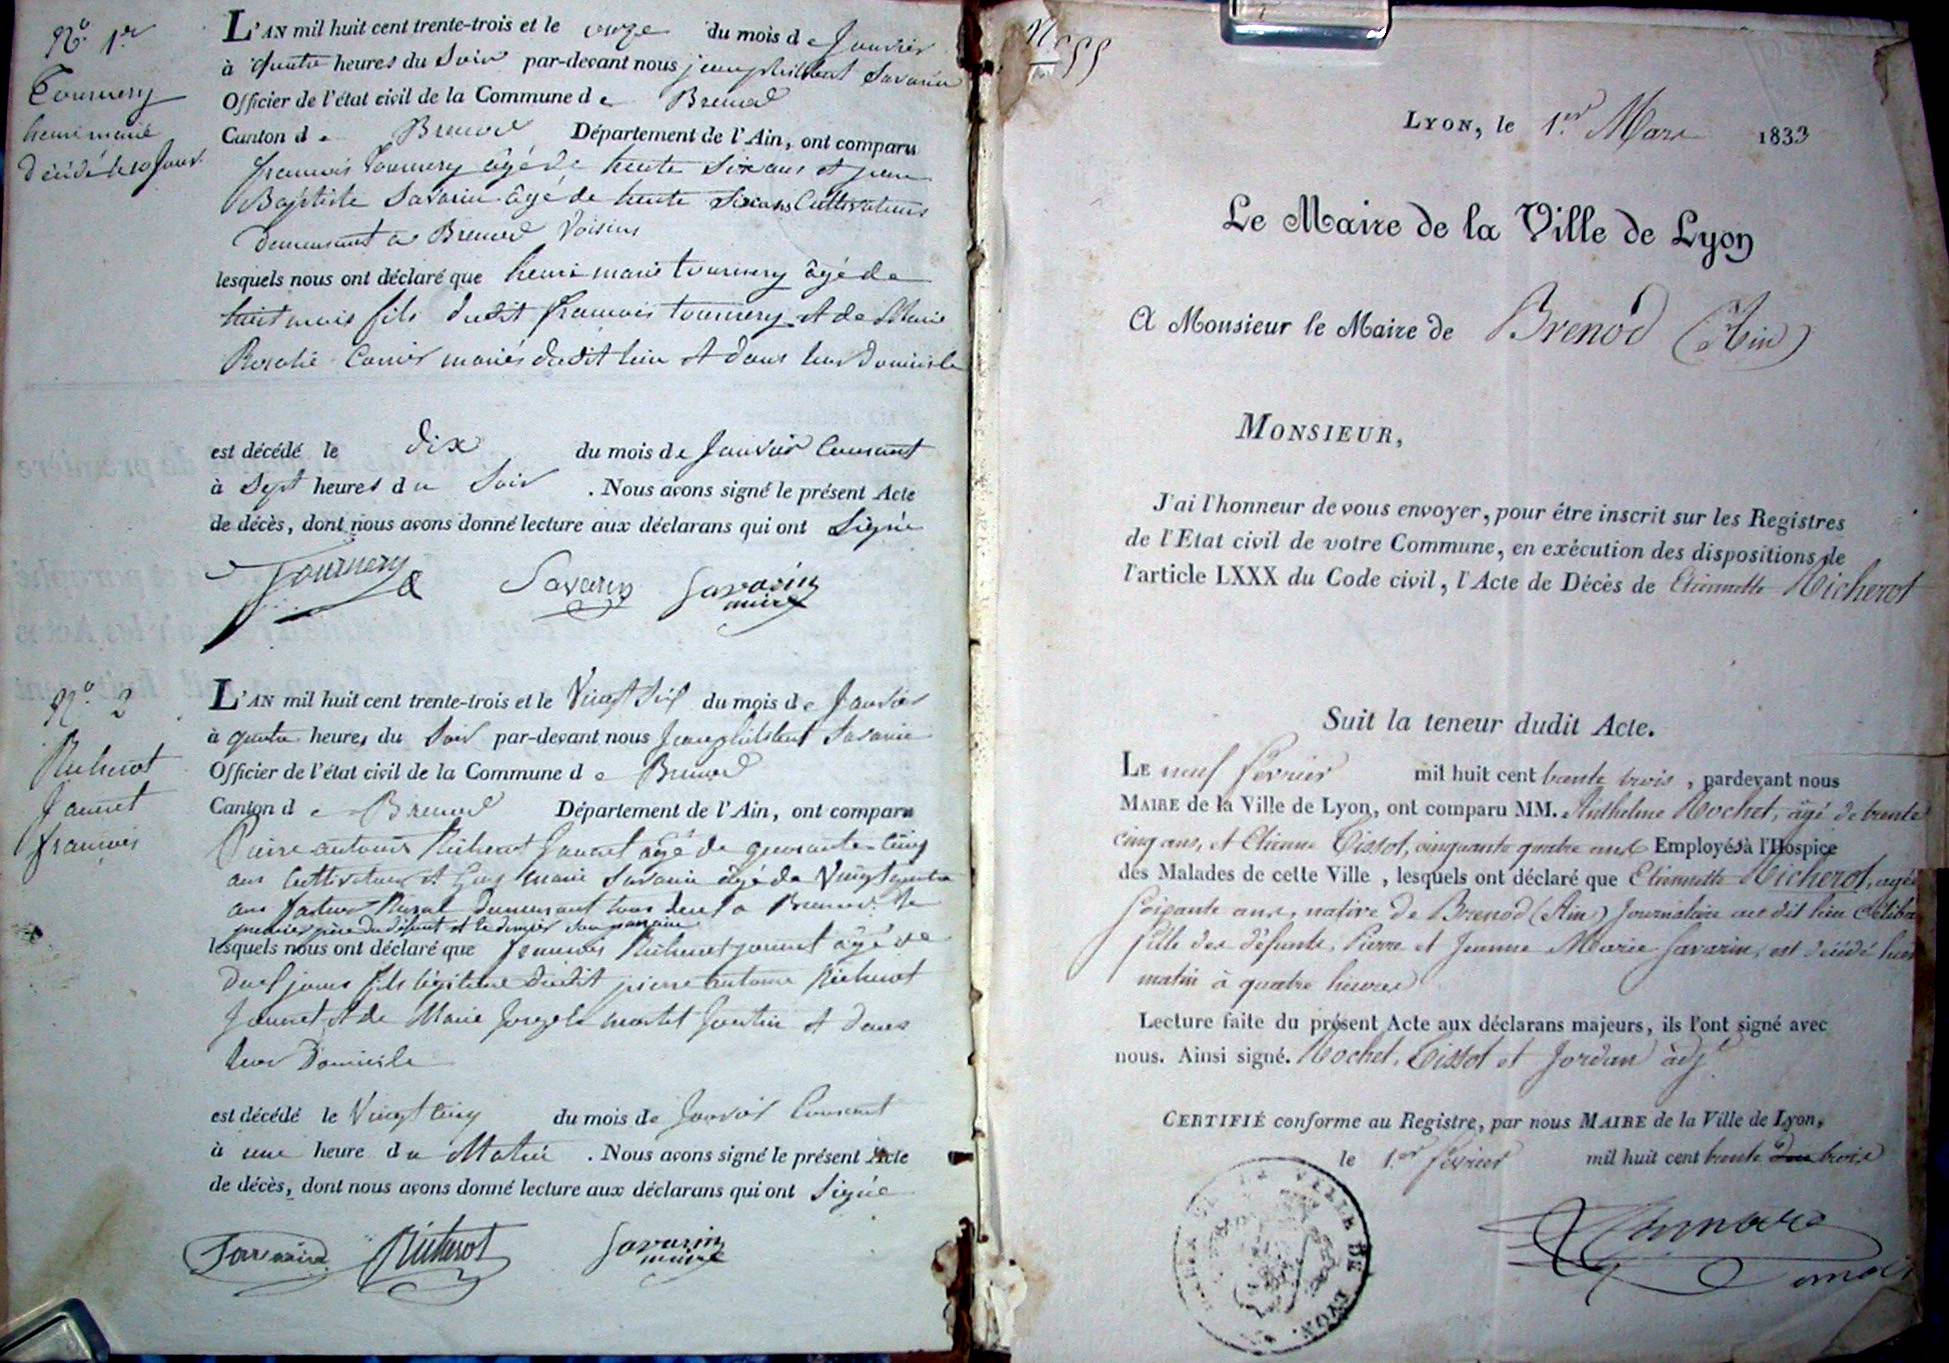 N.º 1.er
Tournery
henri marie
Décédé le 10 Janv.
L'AN mil huit cent trente-trois et le onze du mois de Janvier
à quatre heures du Soir par-devant nous jean philibert Savarin
Officier de l'état civil de la Commune de Brenod
Canton de Brenod Département de l'Ain, ont comparu
francois Tournery âgé de trente six ans et jean
Baptiste Savarin âgé de trente six ans Cultivateurs
Demeurant a Brenod Voisins
lesquels nous ont déclaré que henri marie tournery âgé de
huit mois fils dudit francois tournery et de Marie
Rosalie Carrier mariés dudit lieu et dans leur Domicile
est décédé le dix du mois de Janvier Courant
à Sept heures du Soir . Nous avons signé le présent Acte
de décès, dont nous avons donné lecture aux déclarans qui ont Signé
Tournery Savarin Savarin
maire
N.º 2
Richerot
Jannet
francois
L'AN mil huit cent trente-trois et le Vingt Six du mois de Janvier
à quatre heures du Soir par-devant nous Jean philibert Savarin
Officier de l'état civil de la Commune de Brenod
Canton de Brenod Département de l'Ain, ont comparu
Pierre antoine Richerot Jannet âgé de quarante cinq
ans Cultivateur et marie Savarin âgé de Vingt quatre
ans facteur Rural demeurant tous deux a Brenod le
premier père du défunt et le dernier son parrain
lesquels nous ont déclaré que francois Richerot jannet âgé de
Deux jours fils légitime dudit pierre antoine Richerot
Jannet et de Marie Josephte et dans
leur Domicile
est décédé le Vingt cinq du mois de Janvier Courant
à une heure du Matin . Nous avons signé le présent Acte
de décès, dont nous avons donné lecture aux déclarans qui ont Signé
Richerot Savarin
maire
N.º 55
LYON, le 1.er Mars 1833
Le Maire de la Ville de Lyon
A Monsieur le Maire de Brenod (Ain)
MONSIEUR,
J'ai l'honneur de vous envoyer, pour être inscrit sur les Registres
de l'Etat civil de votre Commune, en exécution des dispositions de
l'article LXXX du Code civil, l'Acte de Décès de Etiennette Richerot
Suit la teneur dudit Acte.
LE neuf février mil huit cent trente trois, pardevant nous
MAIRE de la Ville de Lyon, ont comparu MM. Anthelme Rochet, âgé de trente
cinq ans, et Etienne Tissot, cinquante quatre ans Employés à l'Hospice
des Malades de cette Ville, lesquels ont déclaré que Etiennette Richerot, agée
soixante ans, native de Brenod (Ain) Journalière au dit lieu Céliba
fille des défunts, Pierre et Jeanne Marie Savarin, est décédé hier
matin à quatre heures
Lecture faite du présent Acte aux déclarans majeurs, ils l'ont signé avec
nous. Ainsi signé. Rochet, Tissot et Jordan adj.t
CERTIFIÉ conforme au Registre, par nous MAIRE de la Ville de Lyon,
le 1.er février mil huit cent trente deux trois
VILLE DE LYON.